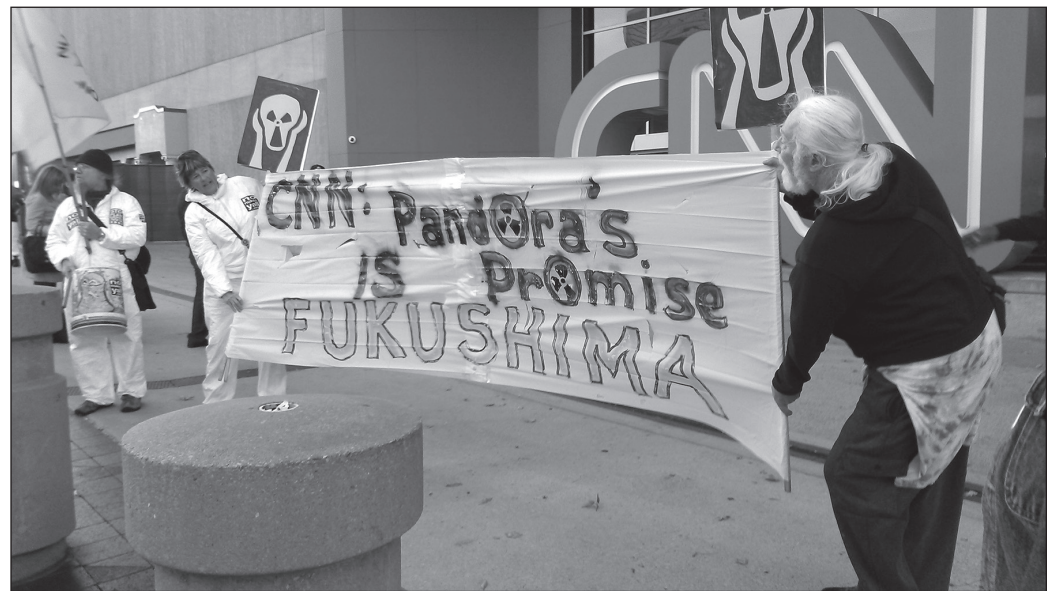 CNN
CNN: Pandora's
is Promise
FUKUSHIMA